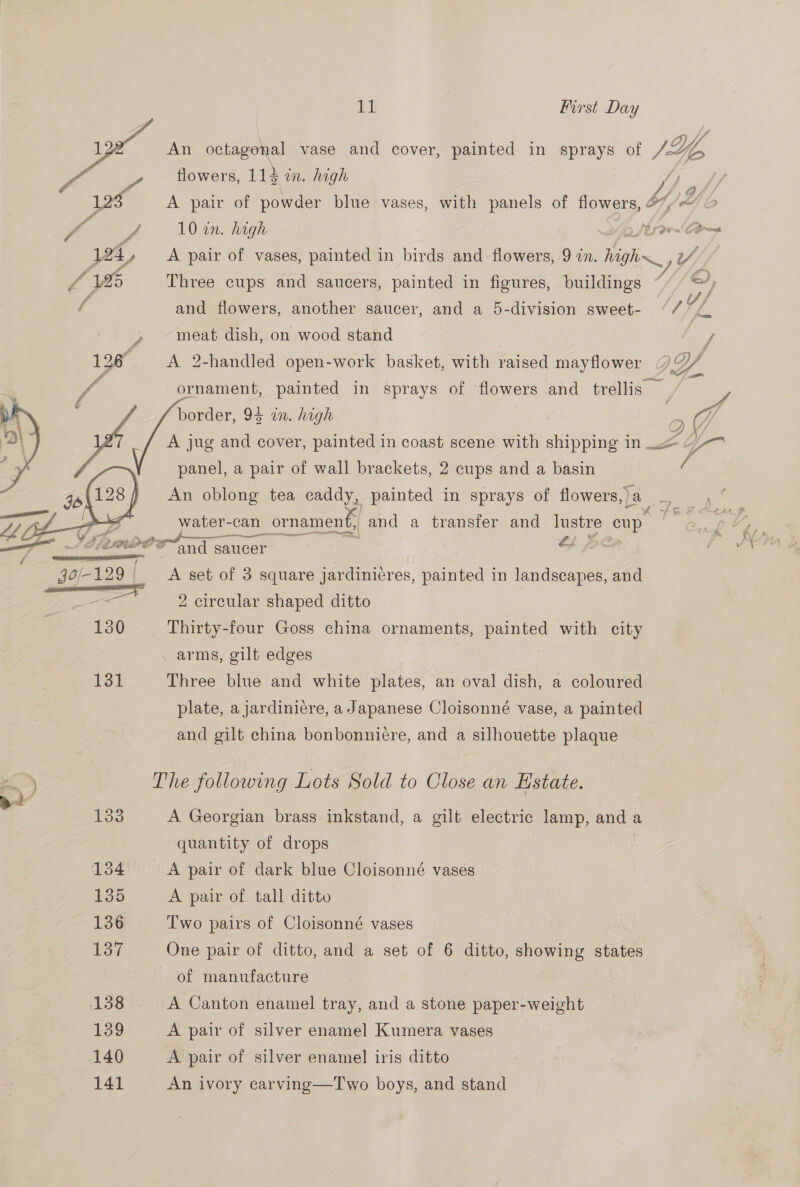 11 First Day
122 An octagonal vase and cover, painted in sprays of
flowers, 11½ in. high
123 A pair of powder blue vases, with panels of flowers,
10 in. high
124 A pair of vases, painted in birds and flowers, 9 in. high
125 Three cups and saucers, painted in figures, buildings
and flowers, another saucer, and a 5-division sweet-
meat dish, on wood stand
126 A 2-handled open-work basket, with raised mayflower
ornament, painted in sprays of flowers and trellis
border, 9½ in. high
127 A jug and cover, painted in coast scene with shipping in
panel, a pair of wall brackets, 2 cups and a basin
128 An oblong tea caddy, painted in sprays of flowers, a
water-can ornament, and a transfer and lustre cup
and saucer
30/- 129 A set of 3 square jardinières, painted in landscapes, and
2 circular shaped ditto
130 Thirty-four Goss china ornaments, painted with city
arms, gilt edges
131 Three blue and white plates, an oval dish, a coloured
plate, a jardinière, a Japanese Cloisonné vase, a painted
and gilt china bonbonnière, and a silhouette plaque
The following Lots Sold to Close an Estate.
133 A Georgian brass inkstand, a gilt electric lamp, and a
quantity of drops
134 A pair of dark blue Cloisonné vases
135 A pair of tall ditto
136 Two pairs of Cloisonné vases
137 One pair of ditto, and a set of 6 ditto, showing states
of manufacture
138 A Canton enamel tray, and a stone paper-weight
139 A pair of silver enamel Kumera vases
140 A pair of silver enamel iris ditto
141 An ivory carving—Two boys, and stand